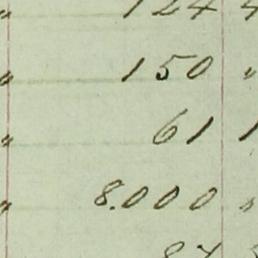 " 124 4
" 150 "
" 61 1
" 8.000 "